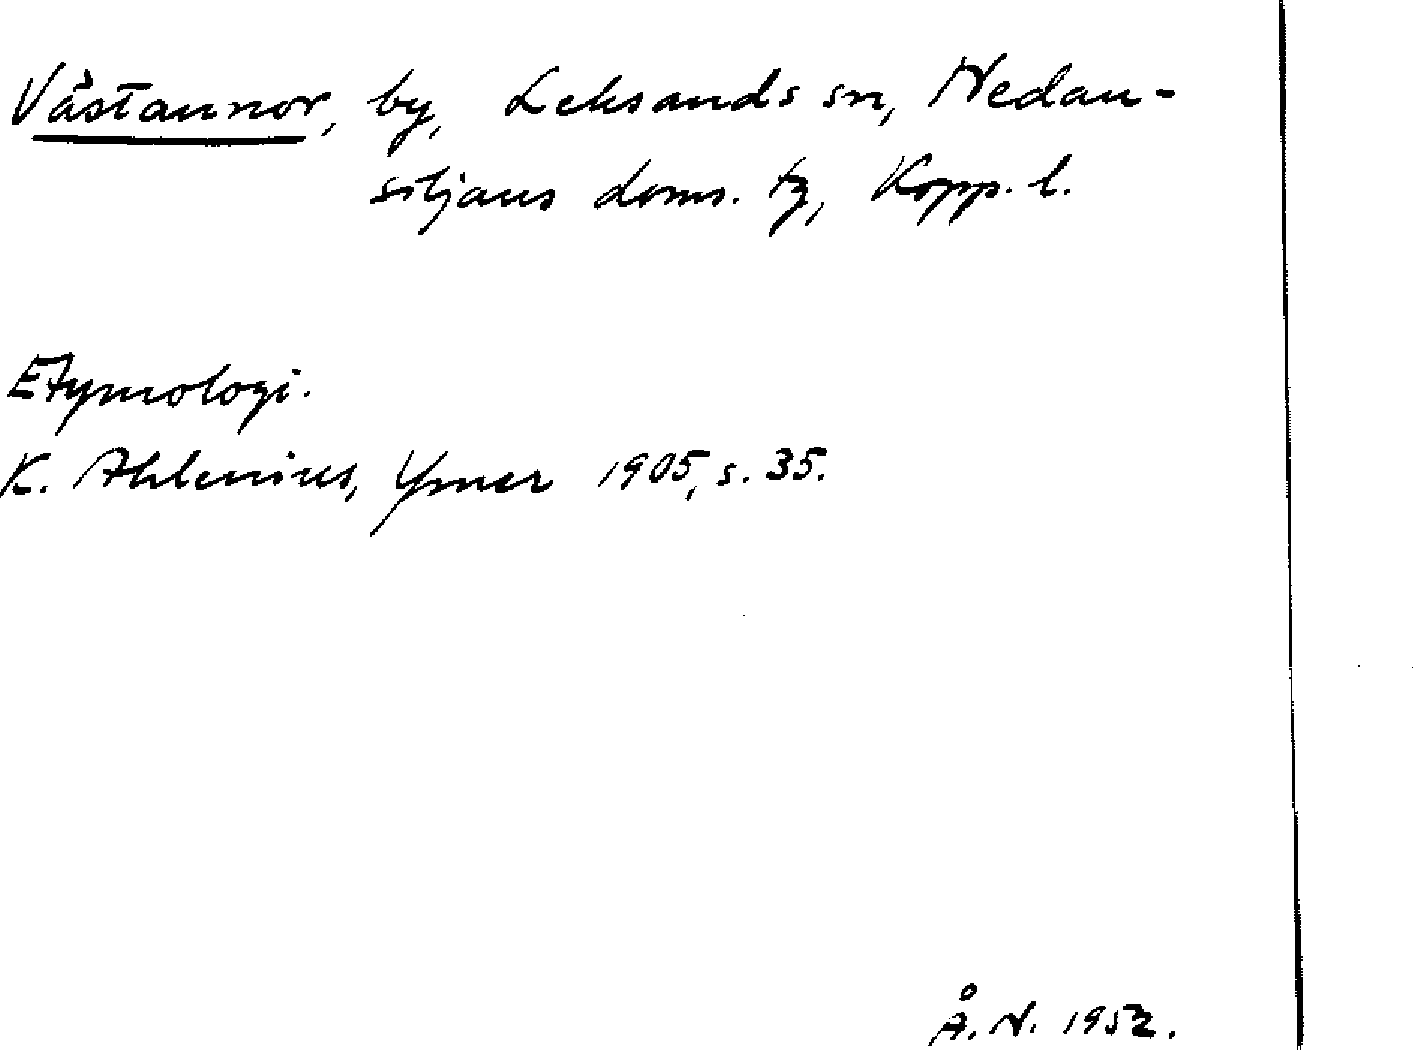 Västannor, by, Leksands sn, Nedan-
siljans doms. tg, Kopp. l.
Etymologi.
K. Ahlenius, Ymer 1905, s. 35.
Å. N. 1952.